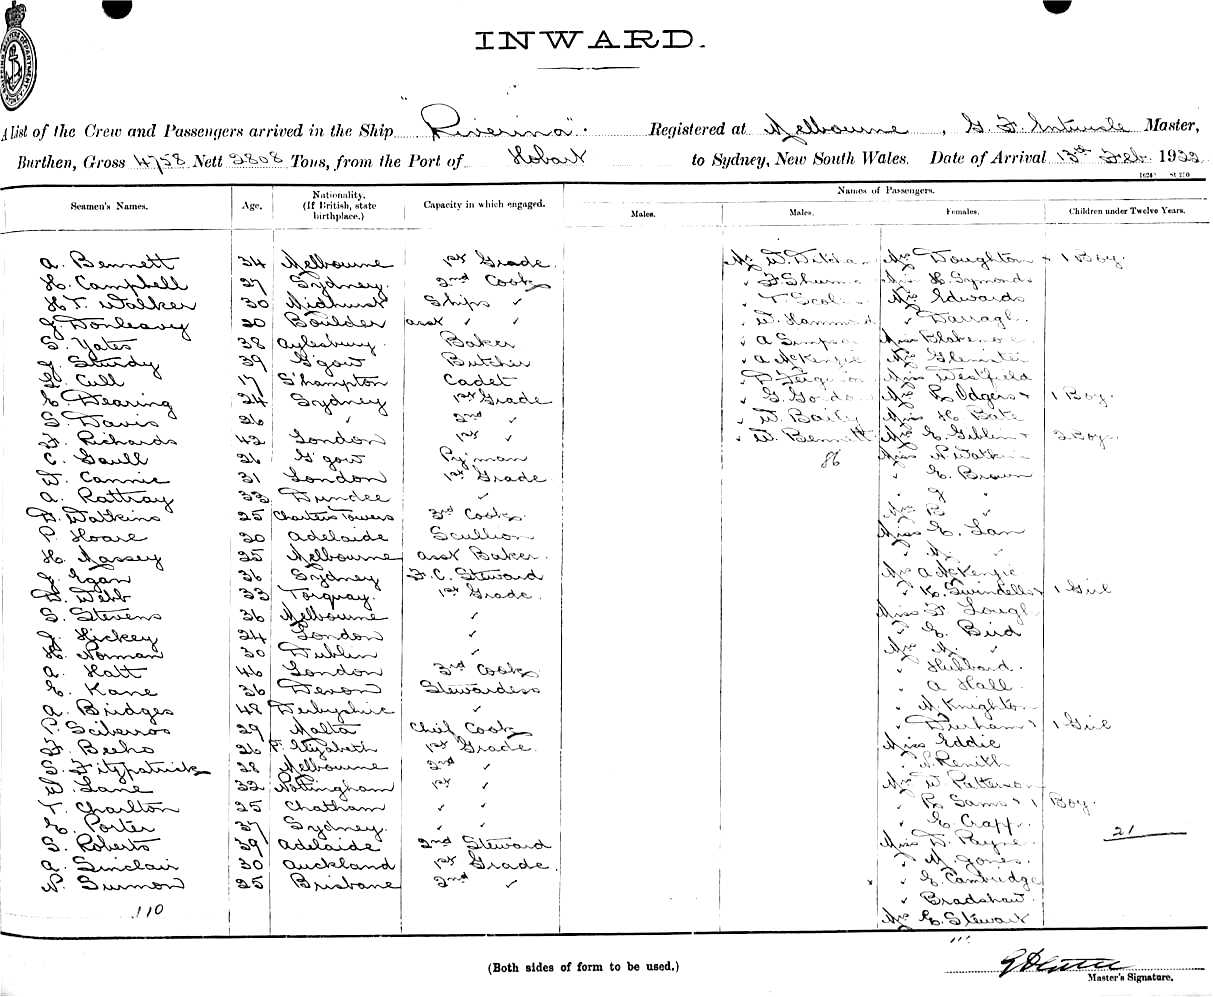 INWARD.
A List of the Crew and Passengers arrived in the Ship "Riverina". Registered at Melbourne, G. F. Master,
Burthen, Gross 4758 Nett 2808 Tons, from the Port of Hobart to Sydney, New South Wales. Date of Arrival 13th Feb. 1922
Names of Passengers.
Seamen's Names. Age. Nationality. (If British, state birthplace.) Capacity in which engaged. Males. Males. Females. Children under Twelve Years.
A. Bennett 34 Melbourne 1st Grade. Mr W. Mrs Doughton + 1 Boy.
H. Campbell 27 Sydney. 2nd Cook ✓ F. Miss H. Symonds
H. T. Walker 30 Midhurst Ships ✓ ✓ T. Mrs Edwards
J. Donleavy 20 Boulder asst ✓ ✓ ✓ W. Hammond ✓ Darragh
S. Yates 38 Aylesbury. Baker ✓ A Simpson Miss
J. Sturdy 39 G'gow Butcher ✓ A McKenzie Mrs
Cull 17 S'hampton Cadet ✓ Miss Westfield
C. Dearing 24 Sydney 1st Grade ✓ G. Mrs R Odgers + 1 Boy.
S. Davis 26 ✓ 2nd ✓ ✓ W. Baily Miss H. Bate
F. Richards 42 London 1st ✓ ✓ W. Bennett Mrs E. Giblin + 2 Boys.
C. Gaull 26 G'gow P'yman 86 Miss N. Watkins
W. Cannie 31 London 1st Grade ✓ E. Brown
A. Rattray 33 Dundee ✓ ✓ J ✓
D. Watkins 25 Charters Towers 3rd Cook. Mrs R ✓
P. Hoare 20 Adelaide Scullion Miss E. Lan
H. Massey 25 Melbourne Asst Baker. ✓ M. ✓
J. Egan 36 Sydney F. C. Steward Mrs A McKenzie
D. Webb 33 Torquay. 1st Grade. ✓ K. Swindells + 1 Girl
S. Stevens 36 Melbourne ✓ Miss F
J. Hickey 24 London ✓ ✓ E. Bird
H. Norman 30 Dublin ✓ Mrs M. ✓
A. Hatt 46 London 3rd Cook ✓ Hibbard.
E. Kane 36 Devon Stewardess ✓ A Hall.
A. Bridges 48 Derbyshire ✓ ✓ M. Knighton
P. 29 Malta Chief Cook ✓ Durham + 1 Girl
F. Beeho 26 P. Elizabeth 1st Grade. Miss Eddie
S. Fitzpatrick 28 Melbourne 2nd ✓ ✓ Renith
W. Lane 32 Nottingham 1st ✓ Mrs W Patterson
T. Charlton 25 Chatham ✓ ✓ ✓ R Sams + 1 Boy.
E. Porter 37 Sydney. ✓ ✓ ✓ E Crapp. 21
S. Roberts 39 Adelaide 2nd Steward Miss D. Payne
A. Sinclair 30 Auckland 1st Grade. ✓ M. Jones.
N. Surmon 25 Brisbane 2nd ✓ ✓ E. Cambridge
✓ Bradshaw.
110 Mrs E. Stewart
(Both sides of form to be used.)
Master's Signature.